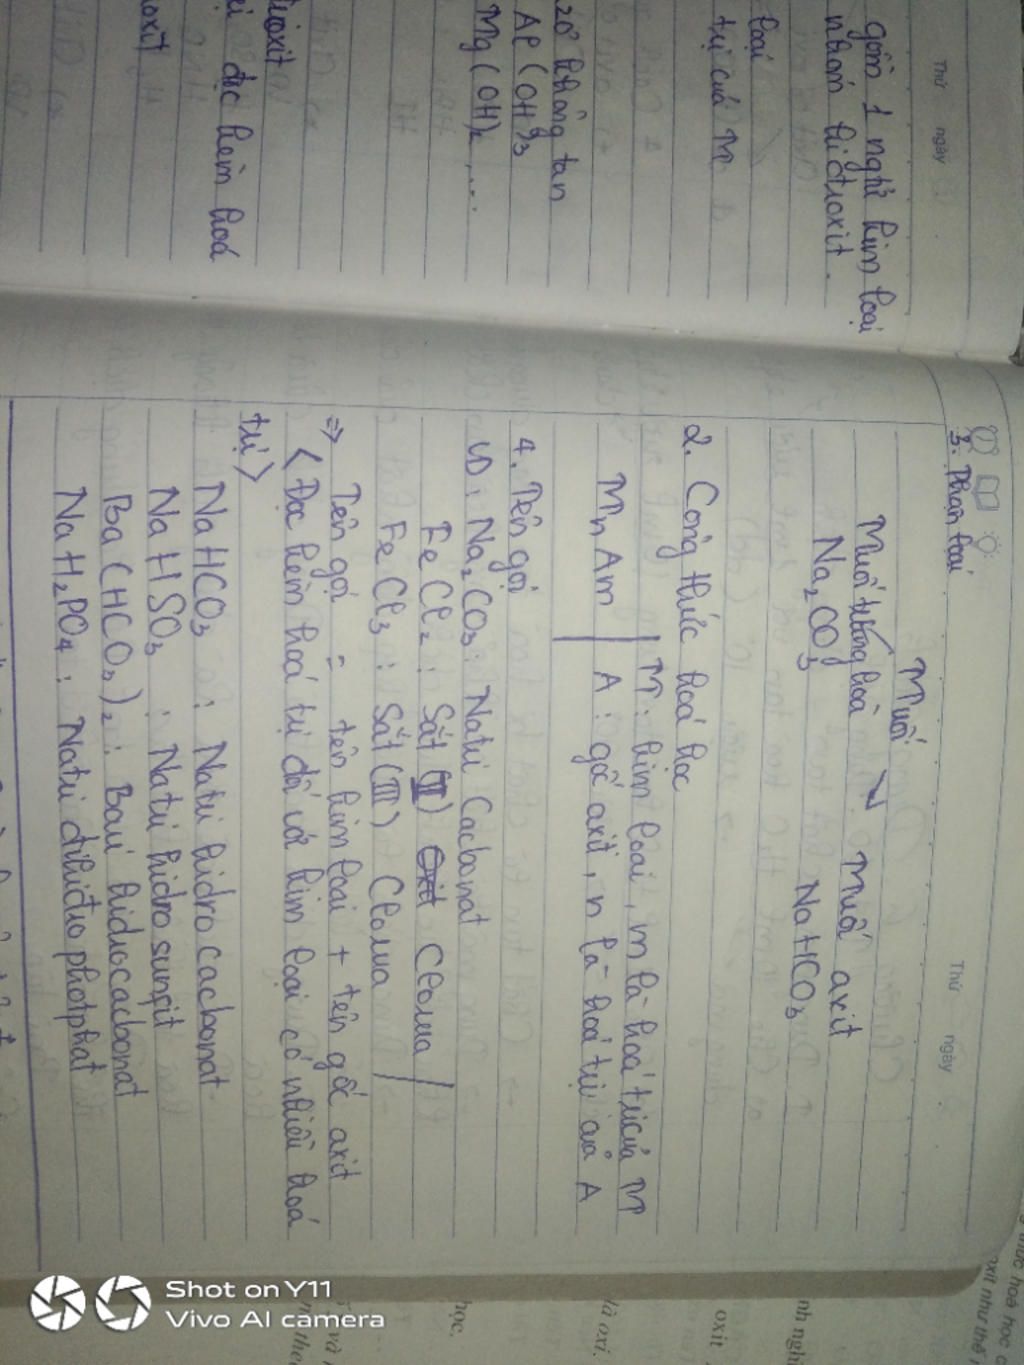 Thứ ngày
gồm 1 nguyên kim loại
nhóm hiđroxit.
loại
trị của M
20° không tan
Al(OH)3
Mg(OH)2,...
đọc kèm hoá
Thứ ngày
3. Phân loại
Muối
Muối trung hoà Muối axit
Na2CO3 NaHCO3
2. Công thức hoá học
MnAm M: kim loại, m là hoá trị của M
A: gốc axit, n là hoá trị của A
4. Tên gọi
VD: Na2CO3: Natri Cacbonat
FeCl2: Sắt (II) Clorua
FeCl3: Sắt (III) Clorua
=> Tên gọi = tên kim loại + tên gốc axit
< Đọc kèm hoá trị đối với kim loại có nhiều hoá
trị >
NaHCO3: Natri hidro cacbonat
NaHSO3: Natri hidro sunfit
Ba(HCO3)2: Bari hidrocacbonat
NaH2PO4: Natri đihiđro photphat
Shot on Y11
Vivo AI camera
học.
là oxi.